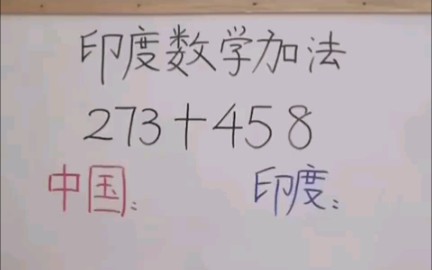 印度数学加法
273+458
中国: 印度: